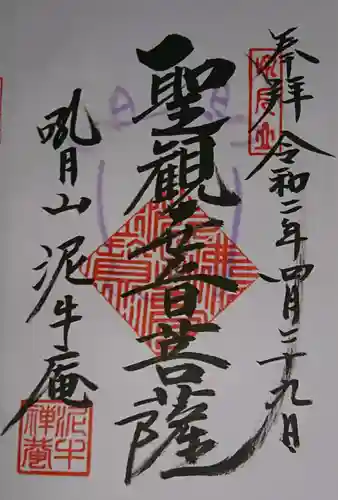 奉拜 令和二年四月二十九日
聖觀世音菩薩
吼月山 泥牛庵
吼月山
泥牛禅菴